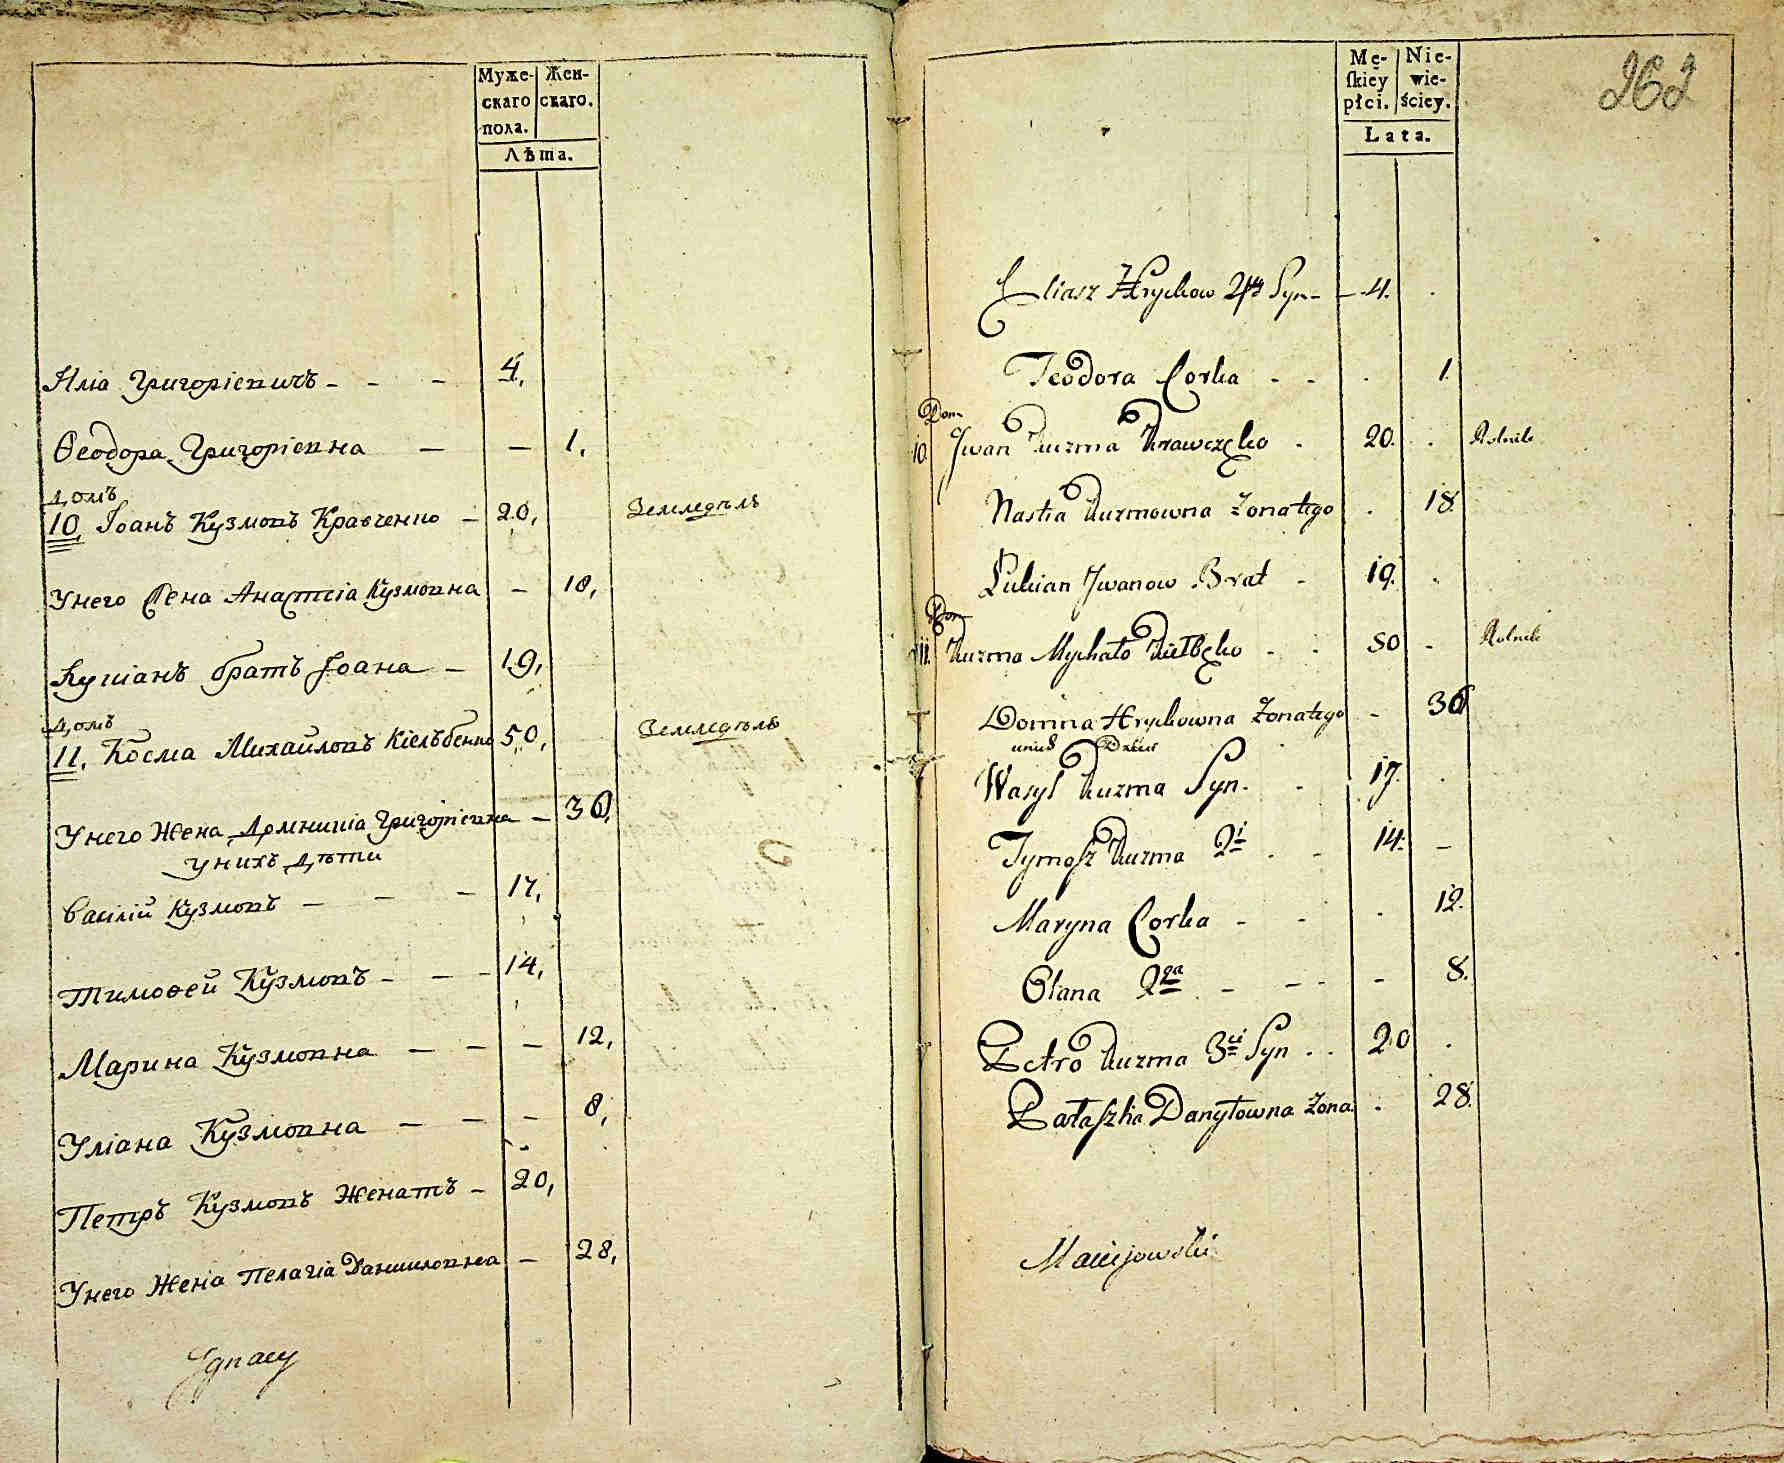 Муже-
скаго
пола.
Жен-
скаго.
Лѣта.
Иліа Григоріевичъ - - - 4,
Ѳеодора Григоріевна — — 1,
Домъ
10, Іоанъ Кузмовъ Кравченко — 20, Земледѣлъ
Унего Жена Анастасіа Кузмовна — 18,
Лукіанъ братъ Іоана — 19,
Домъ
11, Косма Михайловъ Кіелъбенко 50, Земледѣлъ
Унего Жена Домникіа Григоріевна — 36,
унихъ дѣти
Василій Кузмовъ — — — 17,
Тимоѳей Кузмовъ — — — 14,
Марина Кузмовна — — — 12,
Уліана Кузмовна — — — 8,
Петръ Кузмовъ Женатъ — 20,
Унего Жена Пелагіа Даниловна — 28,
Ignacy
262
Mę-
skiey
płci.
Nie-
wie-
ściey.
Lata.
Eliasz Hryckow 2gi Syn - - 4.
Teodora Corka - - . 1.
Dom
10. Jwan Kuzma Krawczęko . 20. . Rolnik
Nastia Kuzmowna Zonatego . 18.
Lukian Jwanow Brat - 19. .
Dom
11. Kuzma Mychało Kiełbęko - . 50 - Rolnik
Domna Hryckowna Zonatego - 36
unich Dzieci
Wasyl Kuzma Syn. - 17. .
Tymosz Kuzma 2i . - 14. —
Maryna Corka - - . 12.
Olana 2ga - - - - 8.
Petro Kuzma 3ci Syn . . 20 .
Pałaszka Danyłowna Zona . 28.
Maciejowski